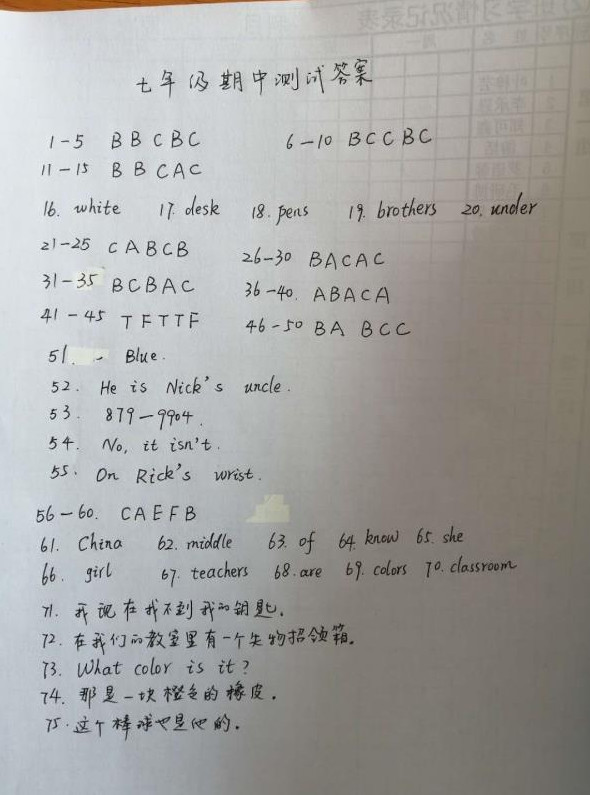 七年级期中测试答案
1-5 B B C B C 6-10 B C C B C
11-15 B B C A C
16. white 17. desk 18. pens 19. brothers 20. under
21-25 C A B C B 26-30 B A C A C
31-35 B C B A C 36-40. A B A C A
41-45 T F T T F 46-50 B A B C C
51. Blue.
52. He is Nick's uncle.
53. 879-9904.
54. No, it isn't.
55. On Rick's wrist.
56-60. C A E F B
61. China 62. middle 63. of 64. know 65. she
66. girl 67. teachers 68. are 69. colors 70. classroom
71. 我现在找不到我的钥匙。
72. 在我们的教室里有一个失物招领箱。
73. What color is it?
74. 那是一块橙色的橡皮。
75. 这个棒球也是他的。